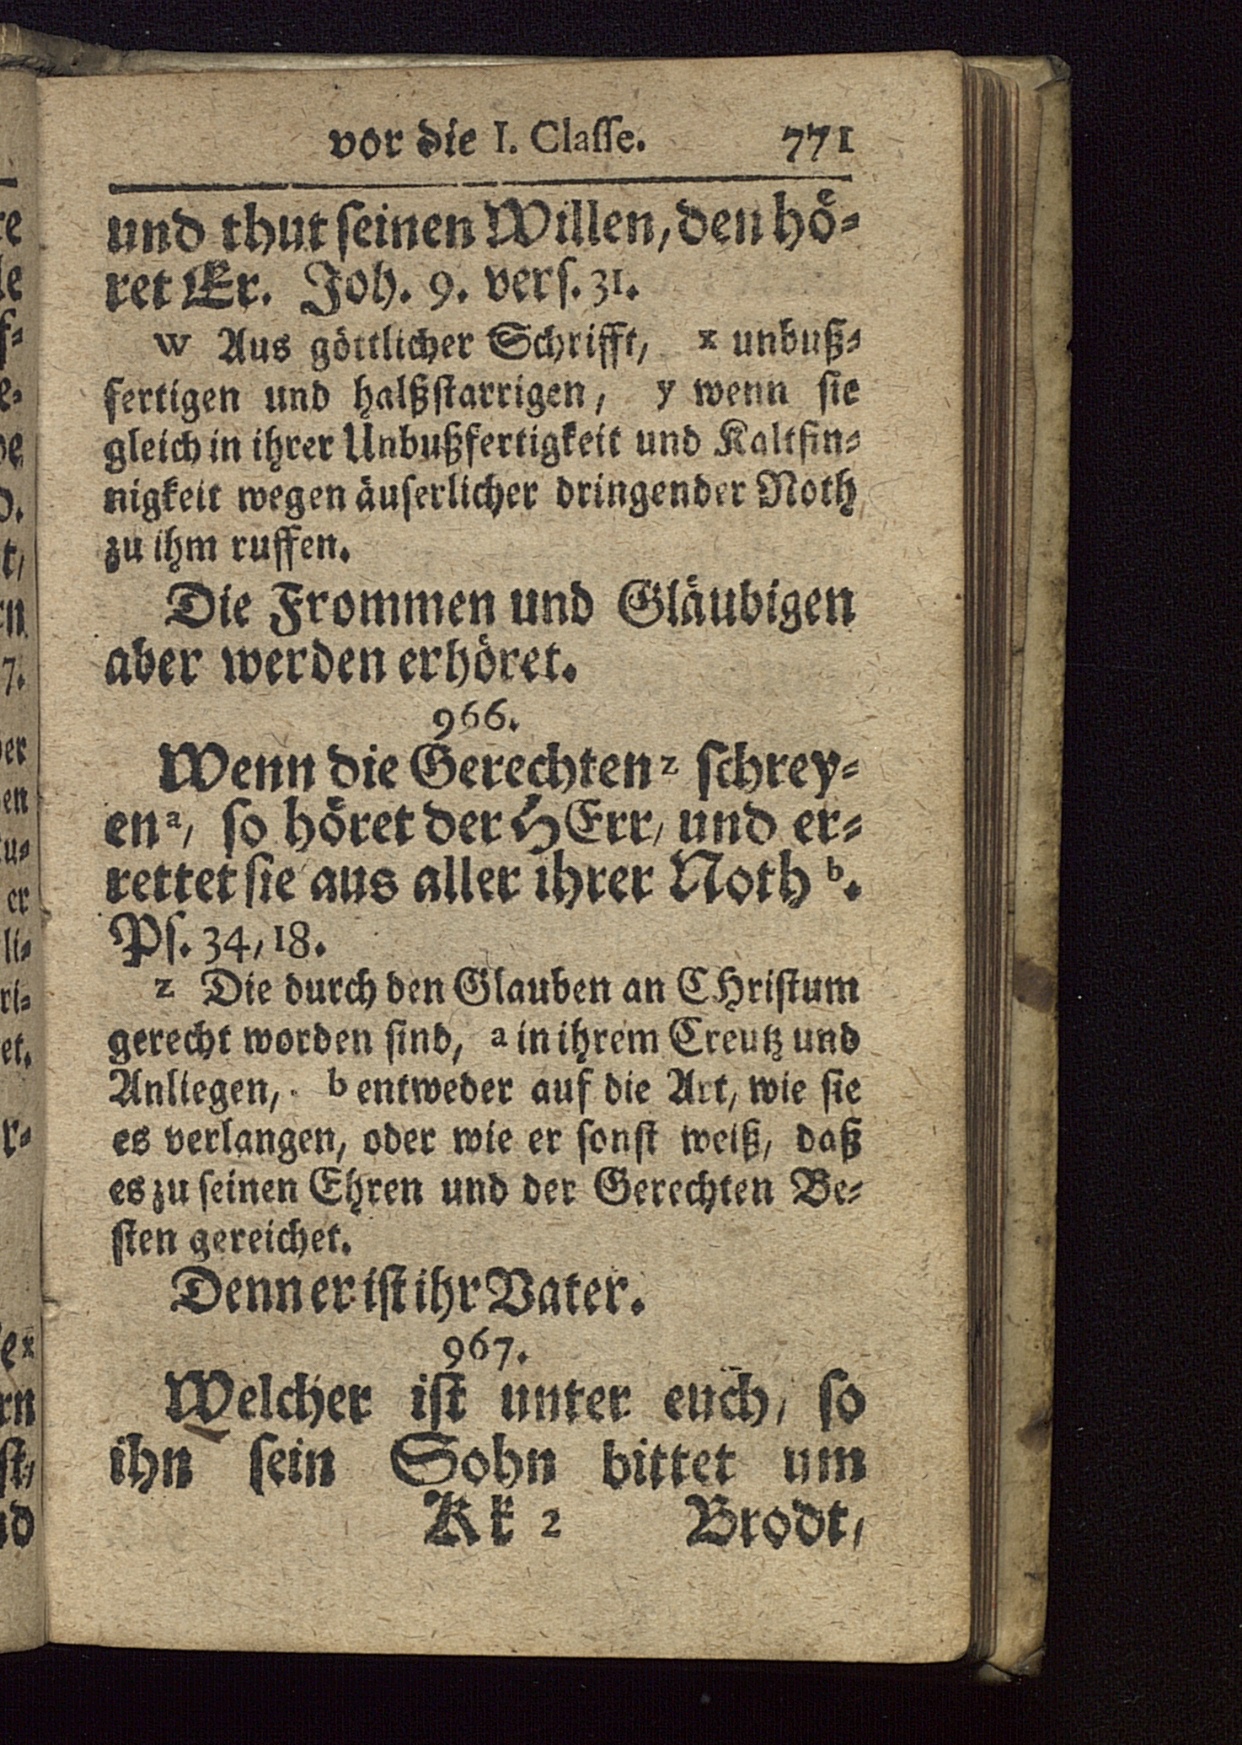 vor die I. Classe. 771
und thut seinen Willen, den hö-
ret Er. Joh. 9. vers. 31.
w Aus göttlicher Schrifft, x unbuß-
fertigen und halßstarrigen, y wenn sie
gleich in ihrer Unbußfertigkeit und Kaltsin-
nigkeit wegen äuserlicher dringender Noth
zu ihm ruffen.
Die Frommen und Gläubigen
aber werden erhöret.
966.
Wenn die Gerechten z schrey-
en a, so höret der HErr, und er-
rettet sie aus aller ihrer Noth b.
Ps. 34, 18.
z Die durch den Glauben an CHristum
gerecht worden sind, a in ihrem Creutz und
Anliegen, b entweder auf die Art, wie sie
es verlangen, oder wie er sonst weiß, daß
es zu seinen Ehren und der Gerechten Be-
sten gereichet.
Denn er ist ihr Vater.
967.
Welcher ist unter euch, so
ihn sein Sohn bittet um
Kk 2 Brodt,